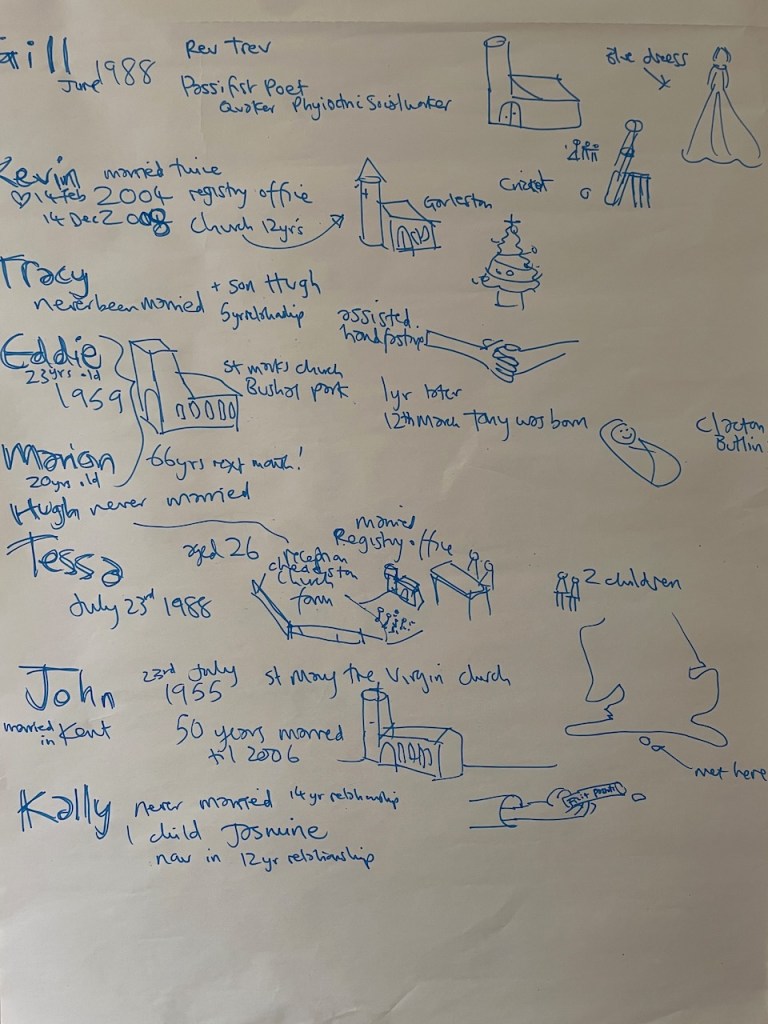 Gill
June 1988
Rev Trev
Passifist Poet
Quaker Socialworker
the dress
Kevin married twice
♡ 14 Feb 2004 registry office
14 Dec 2008 Church 12yr's
Gorleston
Cricket
Tracy
never been married
+ son Hugh
5yr relationship
assisted
handfasting
Eddie
23yrs old
1959
St marks church
Bushy park
1yr later
12th March Tony was born
Clacton
Butlin
Marion
20yrs old
66yrs next month!
Hugh never married
Tessa
aged 26
July 23rd 1988
reception
church
farm
married
Registry office
2 children
John
married
in Kent
23rd July
1955
St Mary the Virgin church
50 years married
2006
met here
Kally never married 14yr relationship
1 child Jasmine
now in 12yr relationship